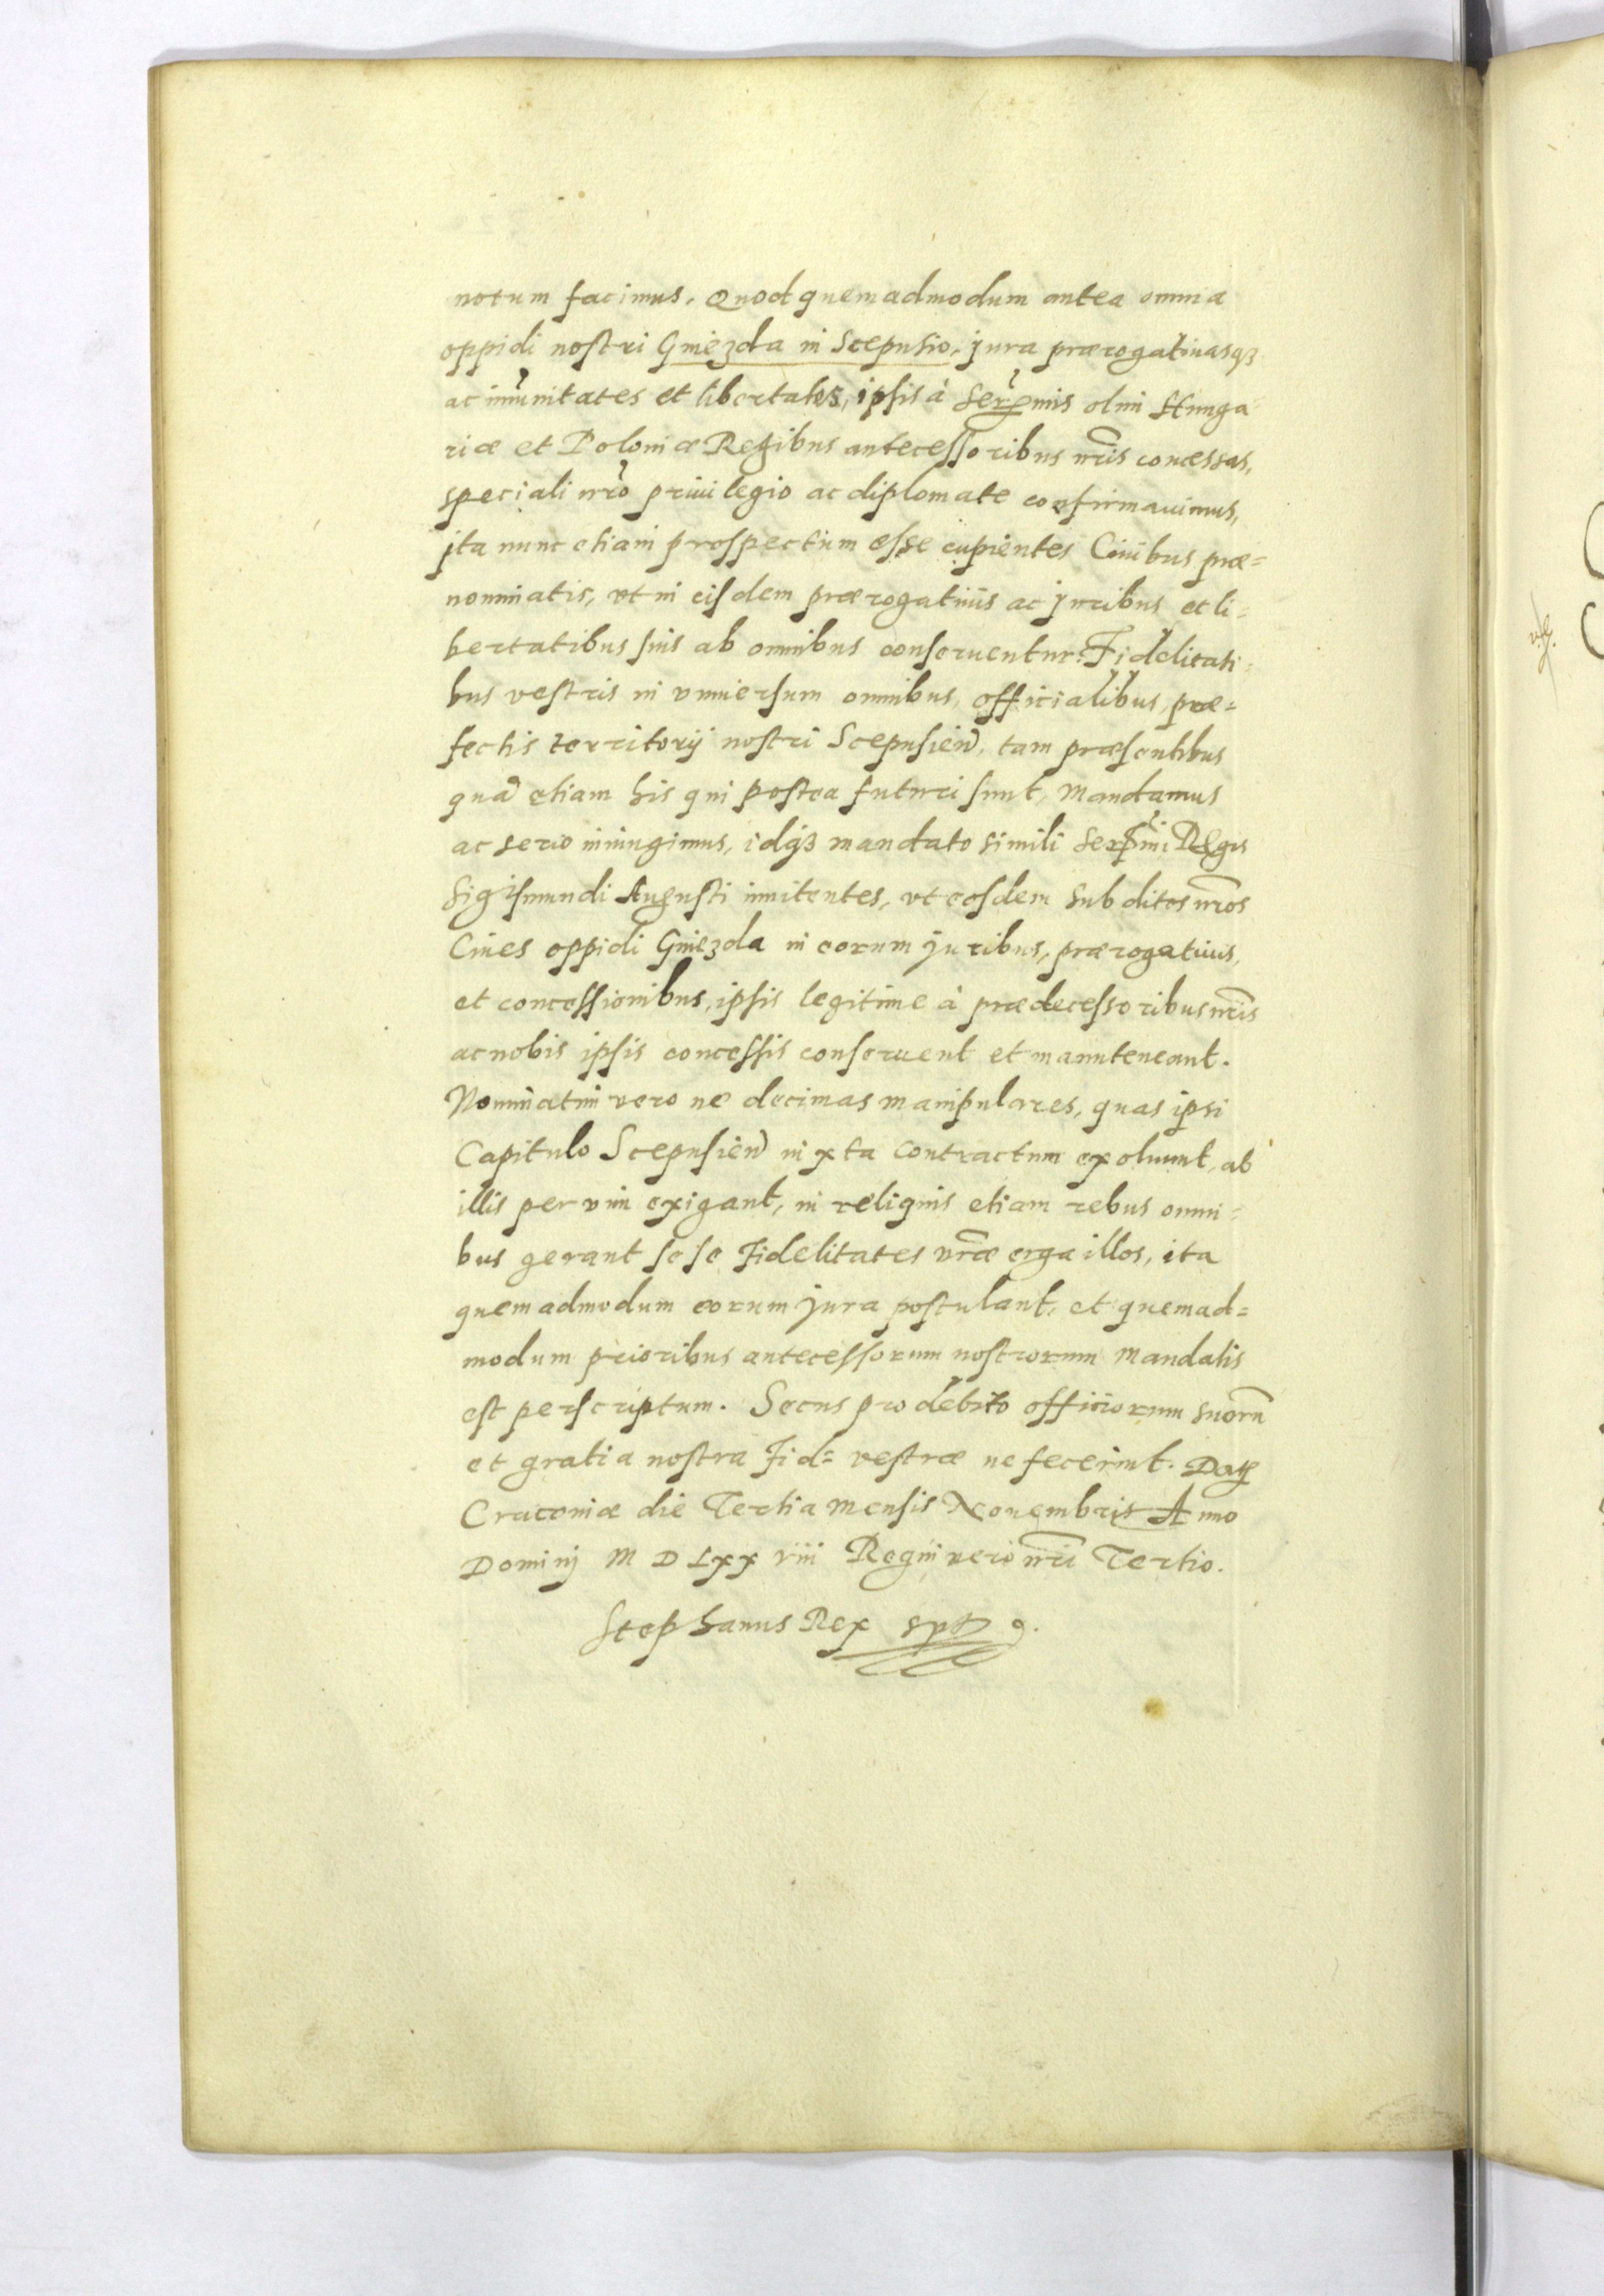 notum facimus. Quod quemadmodum antea omnia
oppidi nostri Gniezda in Scepusio, jura prærogatiuasqȝ
ac imũnitates et libertates, ipsis à Serẽmis olim Hunga
riæ et Poloniæ Regibus antecessoribus nr̃is concessas,
speciali nr̃o priuilegio ac diplomate confirmauimus,
jta nunc etiam prospectum esse cupientes Ciuibus præ=
nominatis, vt in eisdem prærogatiuis ac juribus et li=
bertatibus suis ab omnibus conseruentur: Fidelitati=
bus vestris in vniuersum omnibus, officialibus, præ=
fectis territorij nostri Scepusien̄, tam præsentibus
quā etiam his qui postea futuri sunt, mandamus
ac serio iniungimus, idqȝ mandato simili Serẽmi Regis
Sigismundi Augusti innitentes, vt eosdem subditos nr̃os
Ciues oppidi Gniezda in eorum juribus, prærogatiuis,
et concessionibus, ipsis legitime à prædecessoribus nr̃is
ac nobis ipsis concessis conseruent et manuteneant.
Nominatim vero ne decimas manipulares, quas ipsi
Capitulo Scepusien̄ iuxta contractum exoluunt, ab
illis per vim exigant, in reliquis etiam rebus omni=
bus gerant sese Fidelitates vr̃æ erga illos, ita
quemadmodum eorum jura postulant, et quemad=
modum prioribus antecessorum nostrorum mandatis
est perscriptum. Secus pro debito officiorum suorũ
et gratia nostra Fid= vestræ ne fecerint. Datȝ
Cracouiæ die Tertia mensis Nouembris Anno
Dominj M D Lxx viii Regni vero nr̃i Tertio.
Stephanus Rex sspt